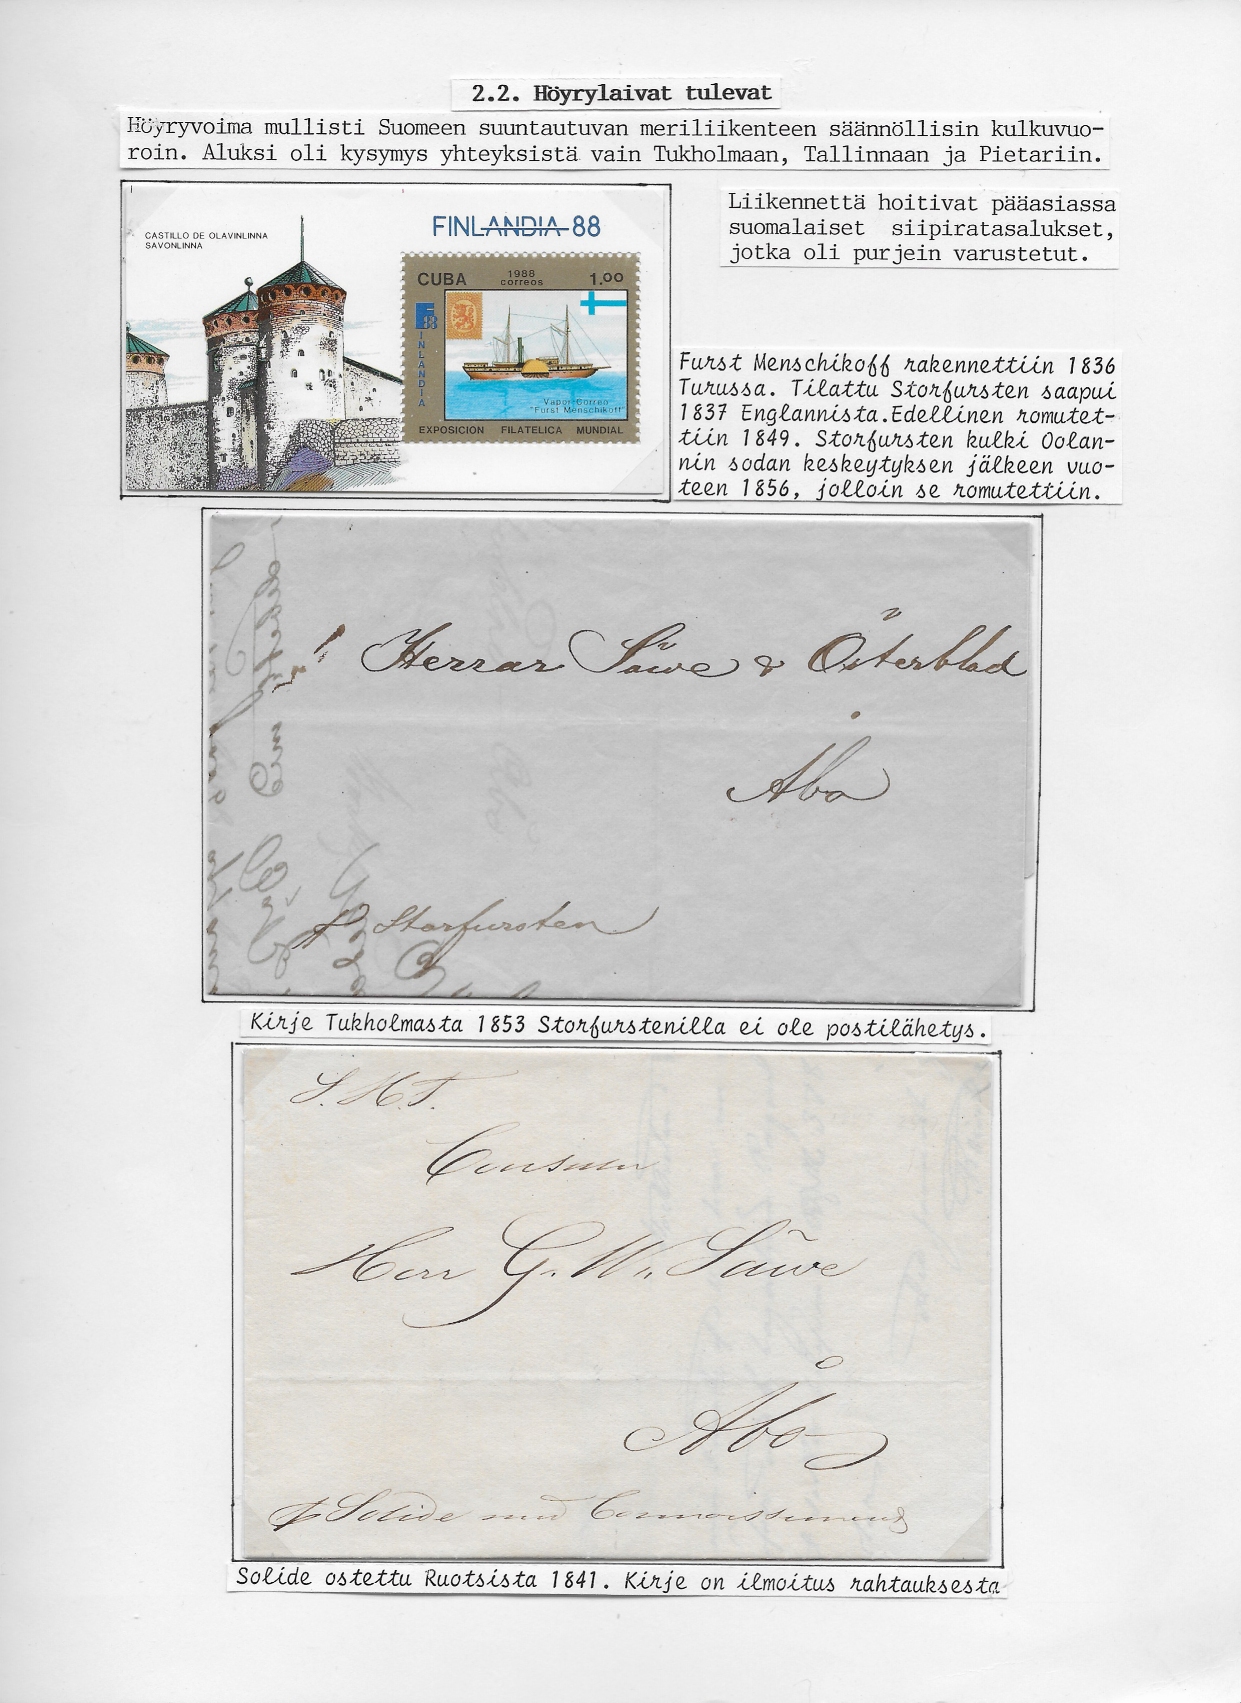 2.2. Höyrylaivat tulevat
Höyryvoima mullisti Suomeen suuntautuvan meriliikenteen säännöllisin kulkuvuo-
roin. Aluksi oli kysymys yhteyksistä vain Tukholmaan, Tallinnaan ja Pietariin.
CASTILLO DE OLAVINLINNA
SAVONLINNA
FINLANDIA 88
CUBA 1988 correos 1.00
FINLANDIA
Vapor-Correo
"Furst Menschikoff"
EXPOSICION FILATELICA MUNDIAL
Liikennettä hoitivat pääasiassa
suomalaiset siipiratasalukset,
jotka oli purjein varustetut.
Furst Menschikoff rakennettiin 1836
Turussa. Tilattu Storfursten saapui
1837 Englannista.Edellinen romutet-
tiin 1849. Storfursten kulki Oolan-
nin sodan keskeytyksen jälkeen vuo-
teen 1856, jolloin se romutettiin.
Herrar Säwe & Österblad
Åbo
p Storfursten
Kirje Tukholmasta 1853 Storfurstenilla ei ole postilähetys.
S. H. T.
Consuln
Herr G. W. Säwe
Åbo
p Solide med Connoissement
Solide ostettu Ruotsista 1841. Kirje on ilmoitus rahtauksesta